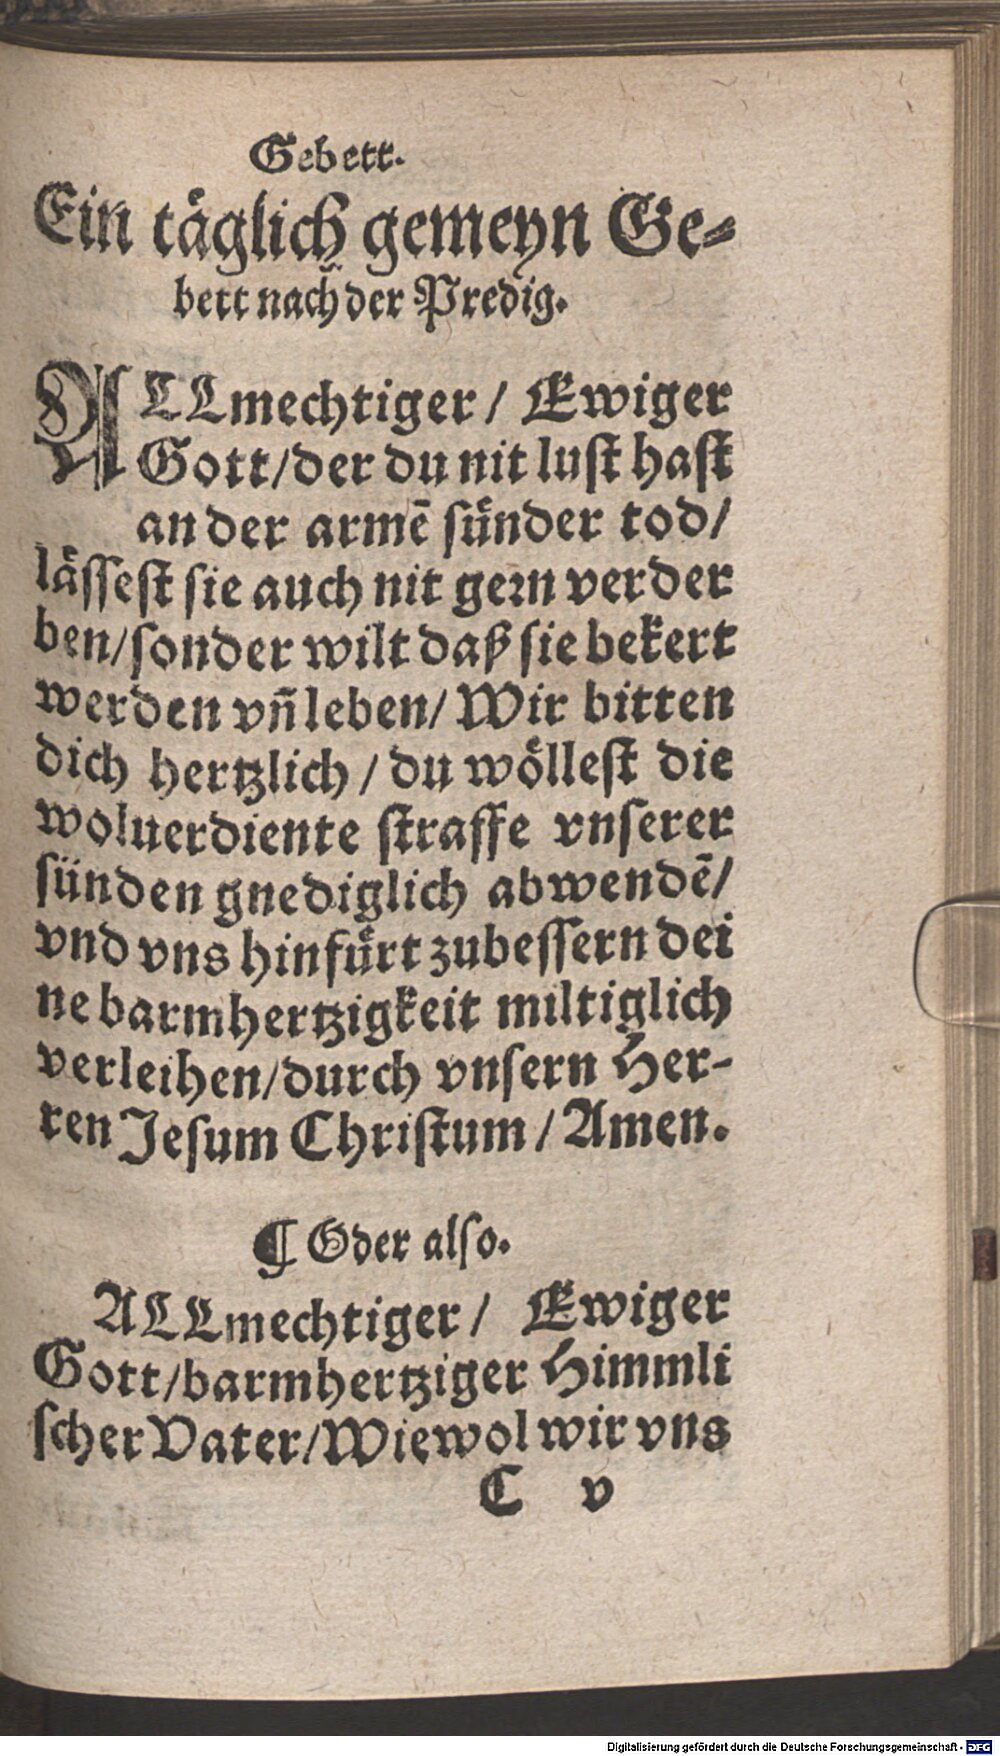 Gebett.
Ein täglich gemeyn Ge-
bett nach der Predig.
ALLmechtiger / Ewiger
Gott/der du nit lust hast
an der armē sünder tod/
lässest sie auch nit gern verder
ben/sonder wilt daß sie bekert
werden vn̄ leben/ Wir bitten
dich hertzlich / du wöllest die
woluerdiente straffe vnserer
sünden gnediglich abwendē/
vnd vns hinfürt zubessern dei
ne barmhertzigkeit miltiglich
verleihen/durch vnsern Her-
ren Jesum Christum / Amen.
¶ Oder also.
ALLmechtiger / Ewiger
Gott/barmhertziger Himmli
scher Vater/Wiewol wir vns
C v
Digitalisierung gefördert durch die Deutsche Forschungsgemeinschaft - DFG